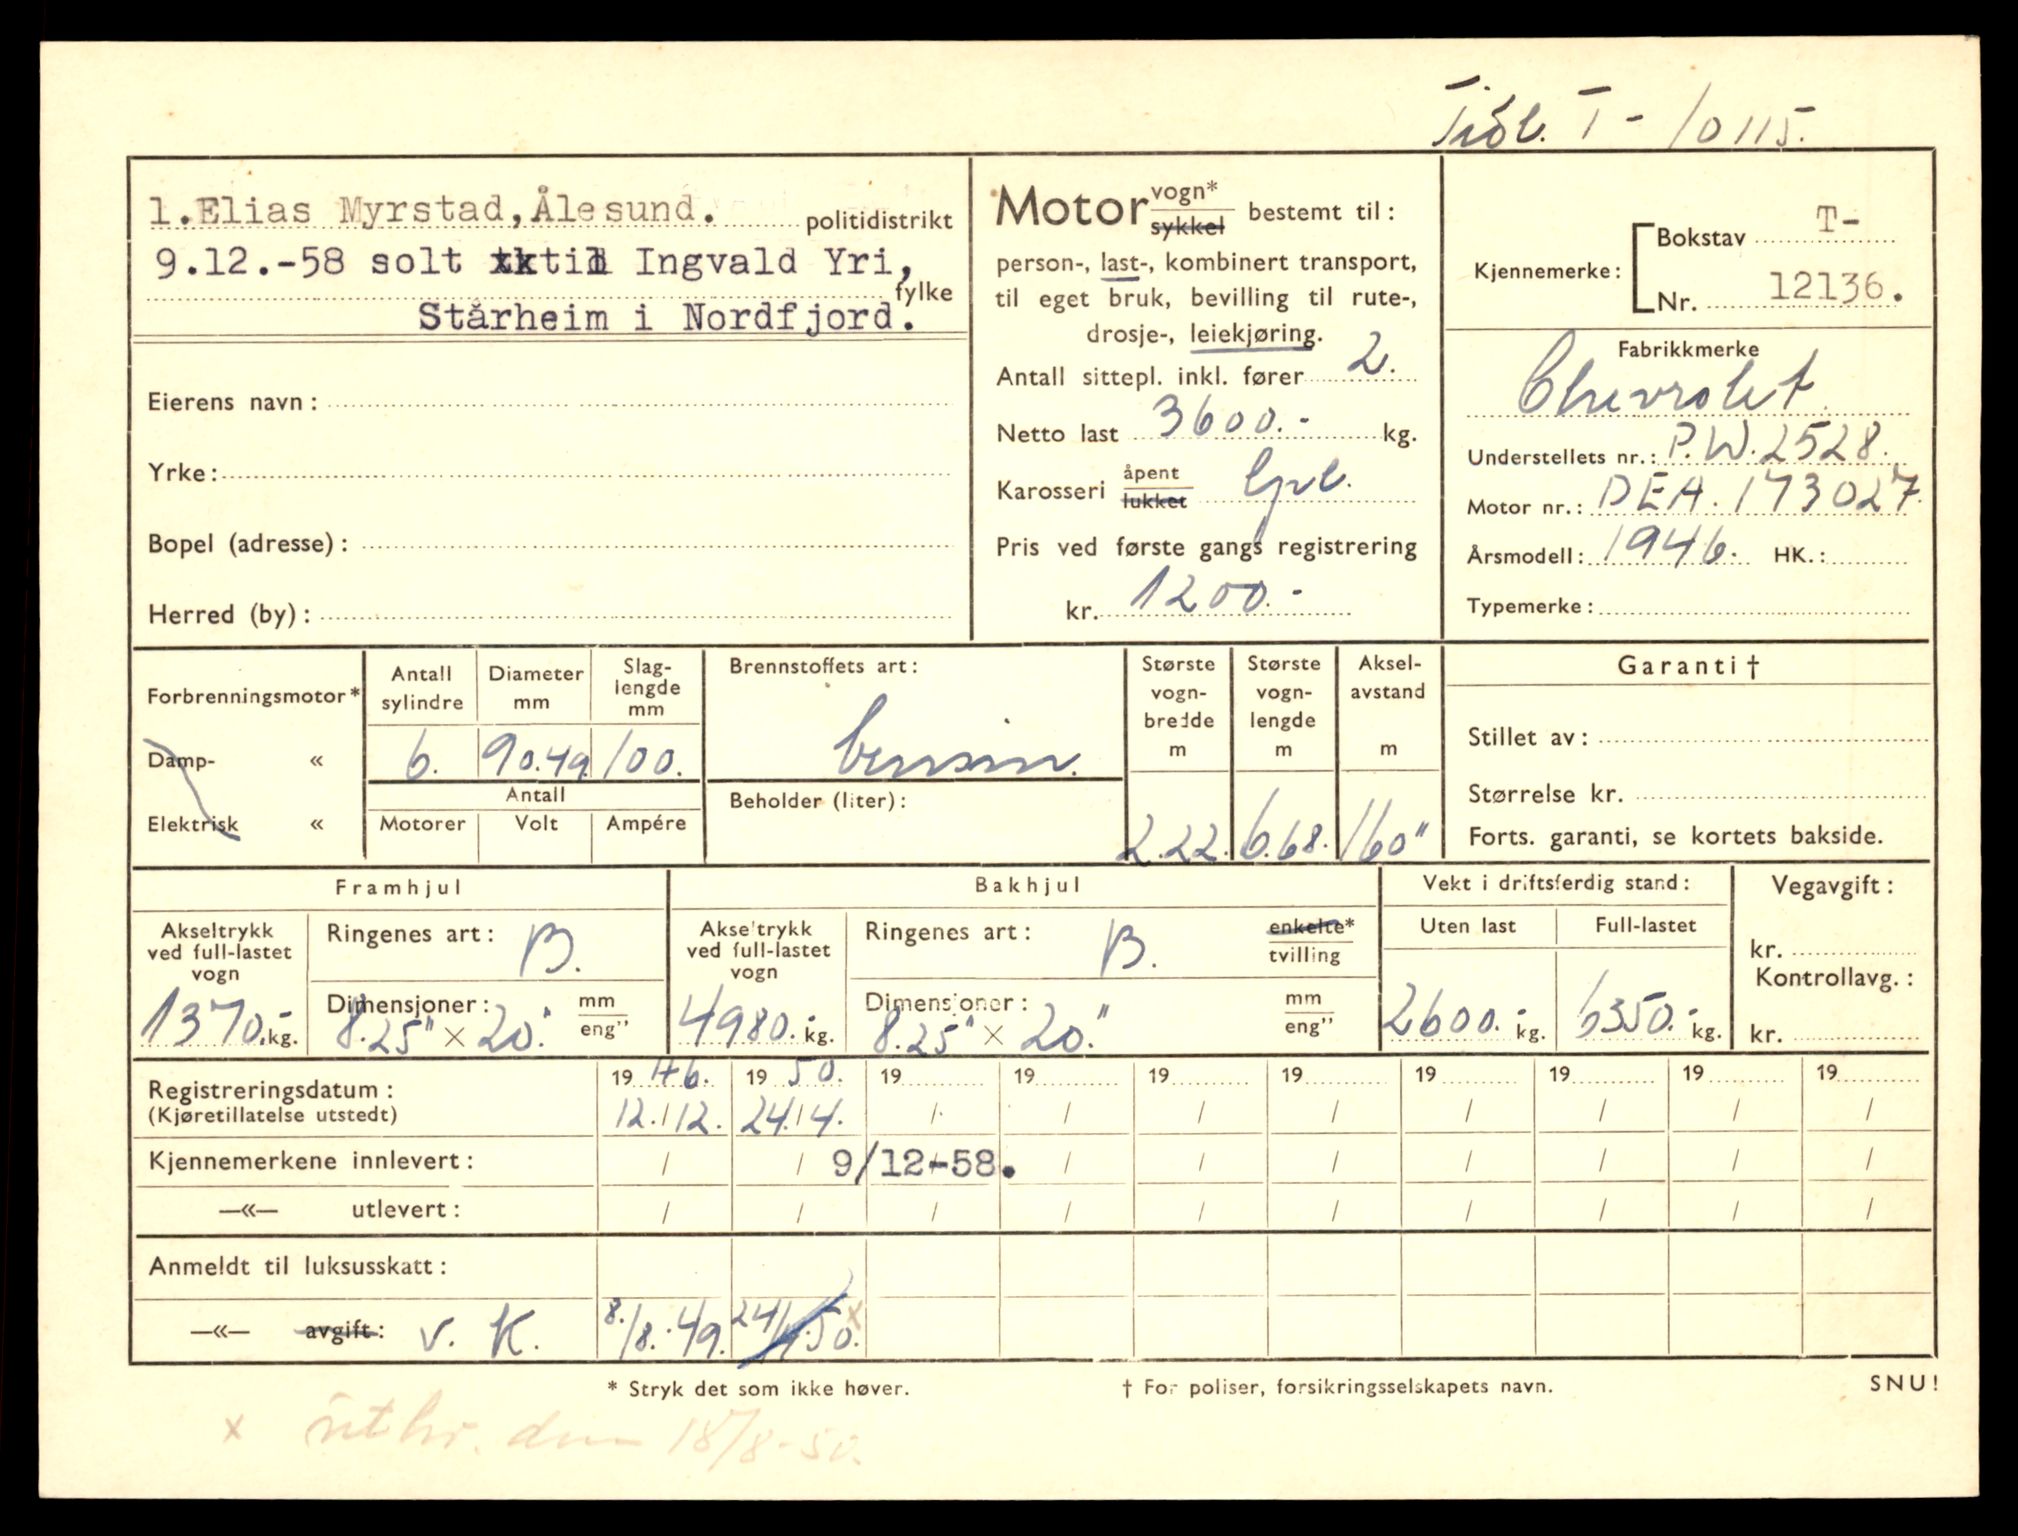 Tidl. T - 10115.
1. Elias Myrstad, Ålesund. politidistrikt
9.12.-58 solt til Ingvald Yri,
fylke
Stårheim i Nordfjord.
Eierens navn:
Yrke:
Bopel (adresse):
Herred (by):
Motor vogn* sykkel bestemt til:
person-, last-, kombinert transport,
til eget bruk, bevilling til rute-,
drosje-, leiekjøring.
Antall sittepl. inkl. fører 2.
Netto last 3600.- kg.
Karosseri åpent lukket
Pris ved første gangs registrering
kr. 1200.-
Kjennemerke: Bokstav T-
Nr. 12136.
Fabrikkmerke
Chevrolet
Understellets nr.: P.W.2528.
Motor nr.: DEA.173027.
Årsmodell: 1946. HK.:
Typemerke:
Forbrenningsmotor*
Damp- «
Elektrisk «
Antall sylindre
Diameter mm
Slag-lengde mm
6. 90.49 100.
Antall
Motorer Volt Ampére
Brennstoffets art:
bensin.
Beholder (liter):
Største vogn-bredde m
Største vogn-lengde m
Aksel-avstand m
2.22. 6.68. 160"
Garanti †
Stillet av:
Størrelse kr.
Forts. garanti, se kortets bakside.
Framhjul
Akseltrykk ved full-lastet vogn
1370.- kg.
Ringenes art: B.
Dimensjoner: mm eng"
8.25" × 20."
Bakhjul
Akseltrykk ved full-lastet vogn
4980.- kg.
Ringenes art: B. enkelte* tvilling
Dimensjoner: mm eng"
8.25" × 20."
Vekt i driftsferdig stand:
Uten last Full-lastet
2600.- kg. 6350.- kg.
Vegavgift:
kr.
Kontrollavg.:
kr.
Registreringsdatum: 19 46. 19 50. 19 19 19 19 19 19 19 19
(Kjøretillatelse utstedt) 12./12. 24./4. / / / / / / / /
Kjennemerkene innlevert: / / 9/12-58. / / / / / / /
—«— utlevert: / / / / / / / / / /
Anmeldt til luksusskatt:
—«— avgift: v. K. 8./8.49. 24/4.50. x
* Stryk det som ikke høver.
† For poliser, forsikringsselskapets navn.
SNU!
x utlev. den 18/8-50.